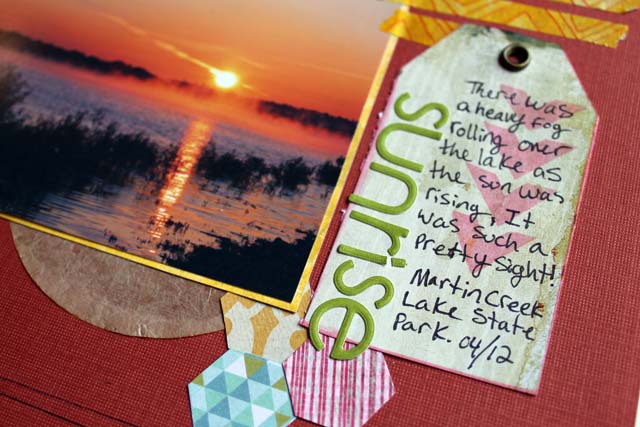 sunrise
There was
a heavy fog
rolling over
the lake as
the sun was
rising, It
was such a
pretty sight!
Martin Creek
Lake State
Park. 04/12